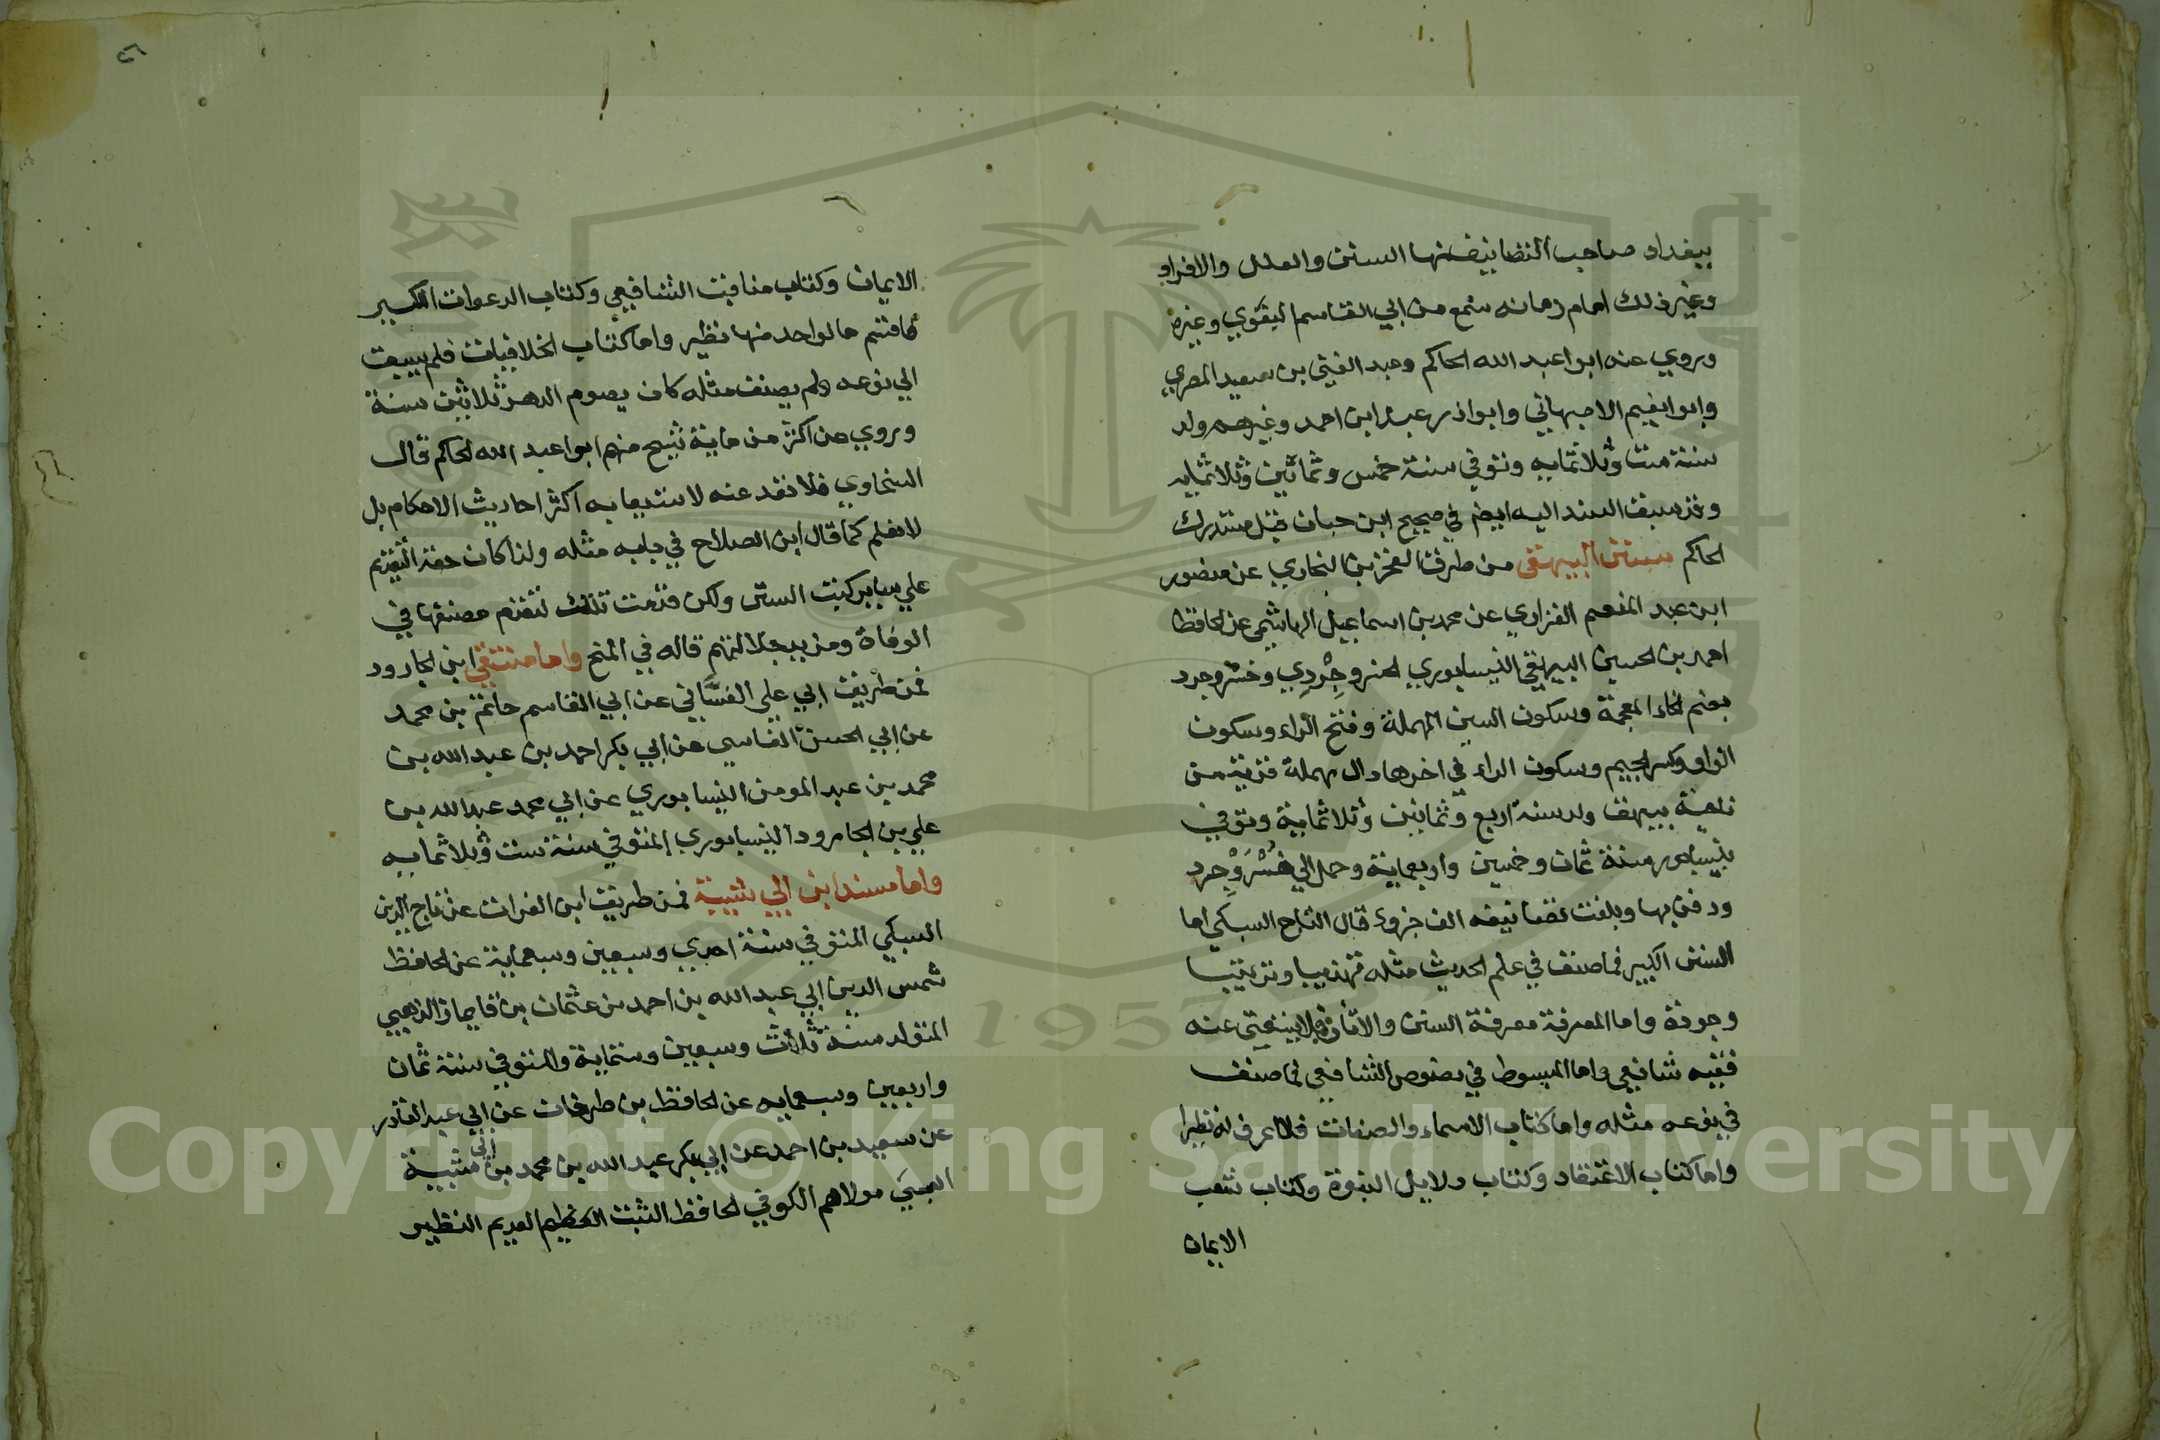 ببغداد صاحب التصانيف منها السنن والعلل والافراد
وغير ذلك امام زمانه سمع من ابي القاسم البغوي وغيره
وروي عنه ابوا عبد الله الحاكم وعبد الغني بن سعيد المصري
وابوا نعيم الاصبهاني وابوا ذر عبد ابن احمد وغيرهم ولد
سنة ست وثلاثمايه وتوفي سنة خمس وثمانين وثلاثمايه
وقد سبق السند اليه ايضا في صحيح ابن حبان قبل مستدرك
الحاكم سنن البيهقي من طرق الفخر بن البخاري عن منصور
ابن عبد المنعم الفراوي عن محمد بن اسماعيل الهاشمي عن الحافظ
احمد بن الحسين البيهقي النيسابوري الخسروجردي وخسروجرد
بضم الخاء المعجمة وسكون السين المهملة وفتح الراء وسكون
الواو وكسر الجيم وسكون الراء في اخرها دال مهملة قرية من
ناحية بيهق ولد سنة اربع وثمانين وثلاثماية وتوفي
بنيسابور سنة ثمان وخمسين واربعماية وحمل الي خسروجرد
ودفن بها وبلغت تصانيفه الف جزوء قال التاج السبكي اما
السنن الكبير فما صنف في علم الحديث مثله تهذيبا وترتيبا
وجودة واما المعرفة معرفة السنن والاثار فلا يستغني عنه
فقيه شافعي واما المبسوط في نصوص الشافعي فما صنف
في نوعه مثله واما كتاب الاسماء والصفات فلا اعرف له نظيرا
واما كتاب الاعتقاد وكتاب دلايل النبوة وكتاب شعب
الايمان
٤٦
الايمان وكتاب مناقب الشافعي وكتاب الدعوات الكبير
فاقسم ما لواحد منها نظير واما كتاب الخلافيات فلم يسبق
الي نوعه ولم يصنف مثله كان يصوم الدهر ثلاثين سنة
وروي عن اكثر من ماية شيخ منهم ابوا عبد الله الحاكم قال
السخاوي فلا تعد عنه لاستيعابه اكثر احاديث الاحكام بل
لا نعلم كما قال ابن الصلاح في بابه مثله ولذا كان حقه التقديم
علي ساير كتب السنن ولكن قدمت تلك لتقدم مصنفها في
الوفاة ومزيد جلالتهم قاله في المنح واما منتقي ابن الجارود
فمن طريق ابي علي الغساني عن ابي القاسم حاتم بن محمد
عن ابي الحسن القابسي عن ابي بكر احمد بن عبد الله بن
محمد بن عبد المومن النيسابوري عن ابي محمد عبد الله بن
علي بن الجارود النيسابوري المتوفي سنة ست وثلاثمايه
واما مسند ابن ابي شيبة فمن طريق ابن الفرات عن تاج الدين
السبكي المتوفي سنة احدي وسبعين وسبعماية عن الحافظ
شمس الدين ابي عبد الله بن احمد بن عثمان بن قايماز الذهبي
المتولد سنة ثلاث وسبعين وستماية والمتوفي سنة ثمان
واربعين وسبعمايه عن الحافظ بن طرخان عن ابي عبد القادر
عن سعيد بن احمد عن ابي بكر عبد الله بن محمد بن ابي شيبة
العبسي مولاهم الكوفي الحافظ الثبت العظيم العديم النظير
Copyright © King Saud University
1957